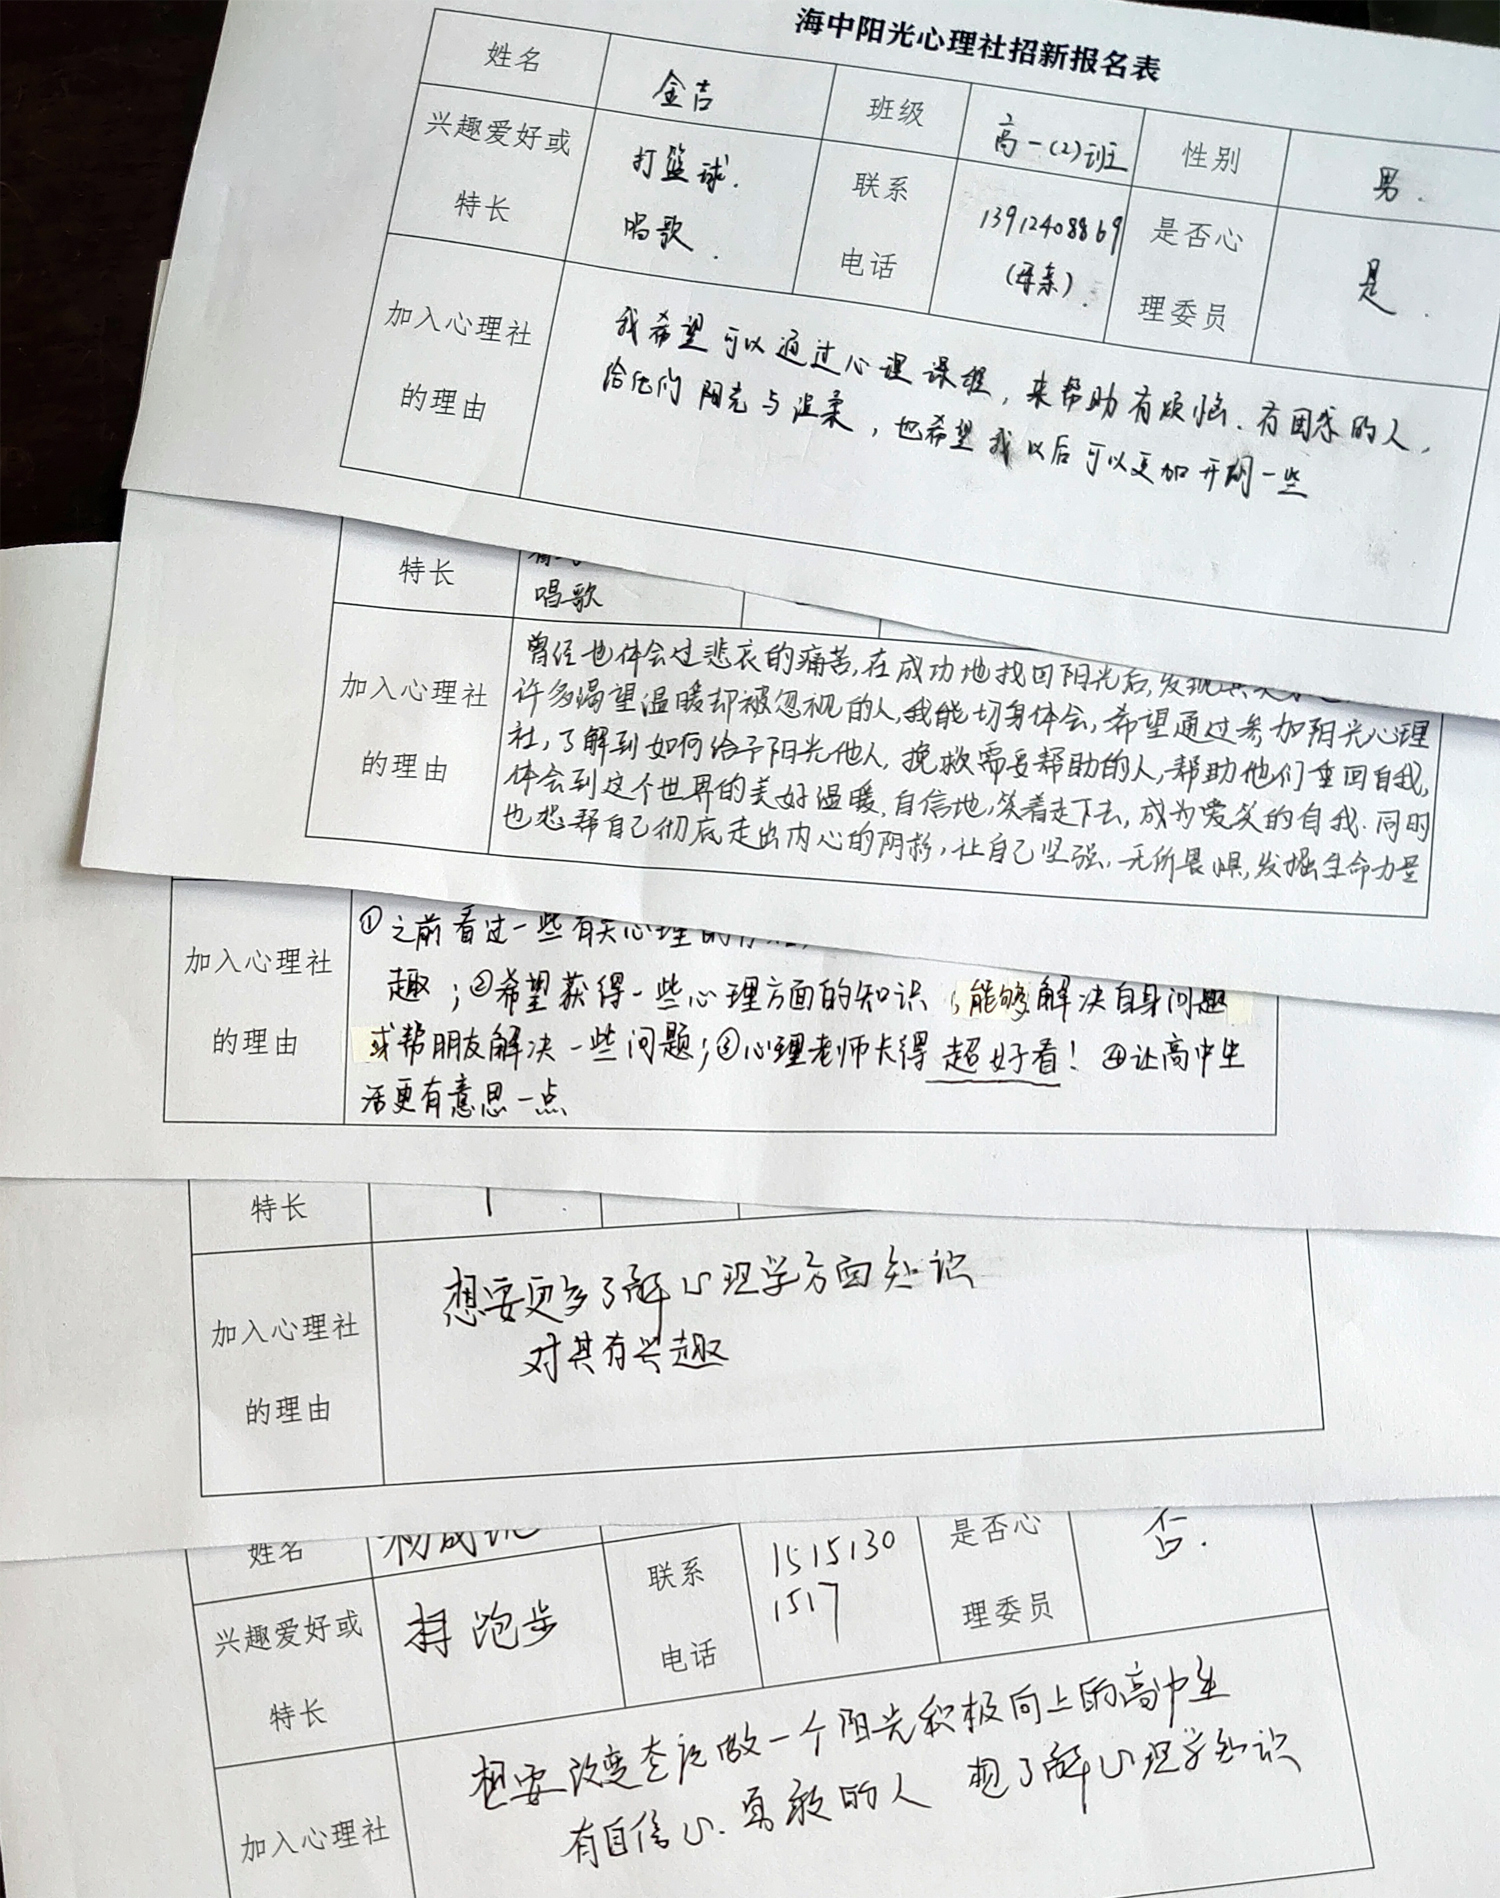 海中阳光心理社招新报名表
姓名 金吉 班级 高一(2)班 性别 男.
兴趣爱好或
特长
打篮球.
唱歌.
联系
电话
13912408869
(母亲).
是否心
理委员
是.
加入心理社
的理由
我希望可以通过心理课程,来帮助有烦恼、有困惑的人,
给他们阳光与温柔,也希望我以后可以更加开朗一些
特长
唱歌
加入心理社
的理由
曾经也体会过悲哀的痛苦,在成功地找回阳光后,发现
许多渴望温暖却被忽视的人,我能切身体会,希望通过参加阳光心理
社,了解到如何给予阳光他人,挽救需要帮助的人,帮助他们重回自我,
体会到这个世界的美好温暖,自信地,笑着走下去,成为爱笑的自我.同时
也想帮自己彻底走出内心的阴影,让自己坚强,无所畏惧,发掘生命力量
加入心理社
的理由
①之前看过一些有关心理的
趣;②希望获得一些心理方面的知识,能够解决自身问题
或帮朋友解决一些问题;③心理老师长得超好看!④让高中生
活更有意思一点
特长
加入心理社
的理由
想要更多了解心理学方面知识
对其有兴趣
姓名
兴趣爱好或
特长
跑步
联系
电话
1515130
1517
是否心
理委员
否.
加入心理社
想要改变态度做一个阳光积极向上的高中生
有自信心.勇敢的人 想了解心理学知识